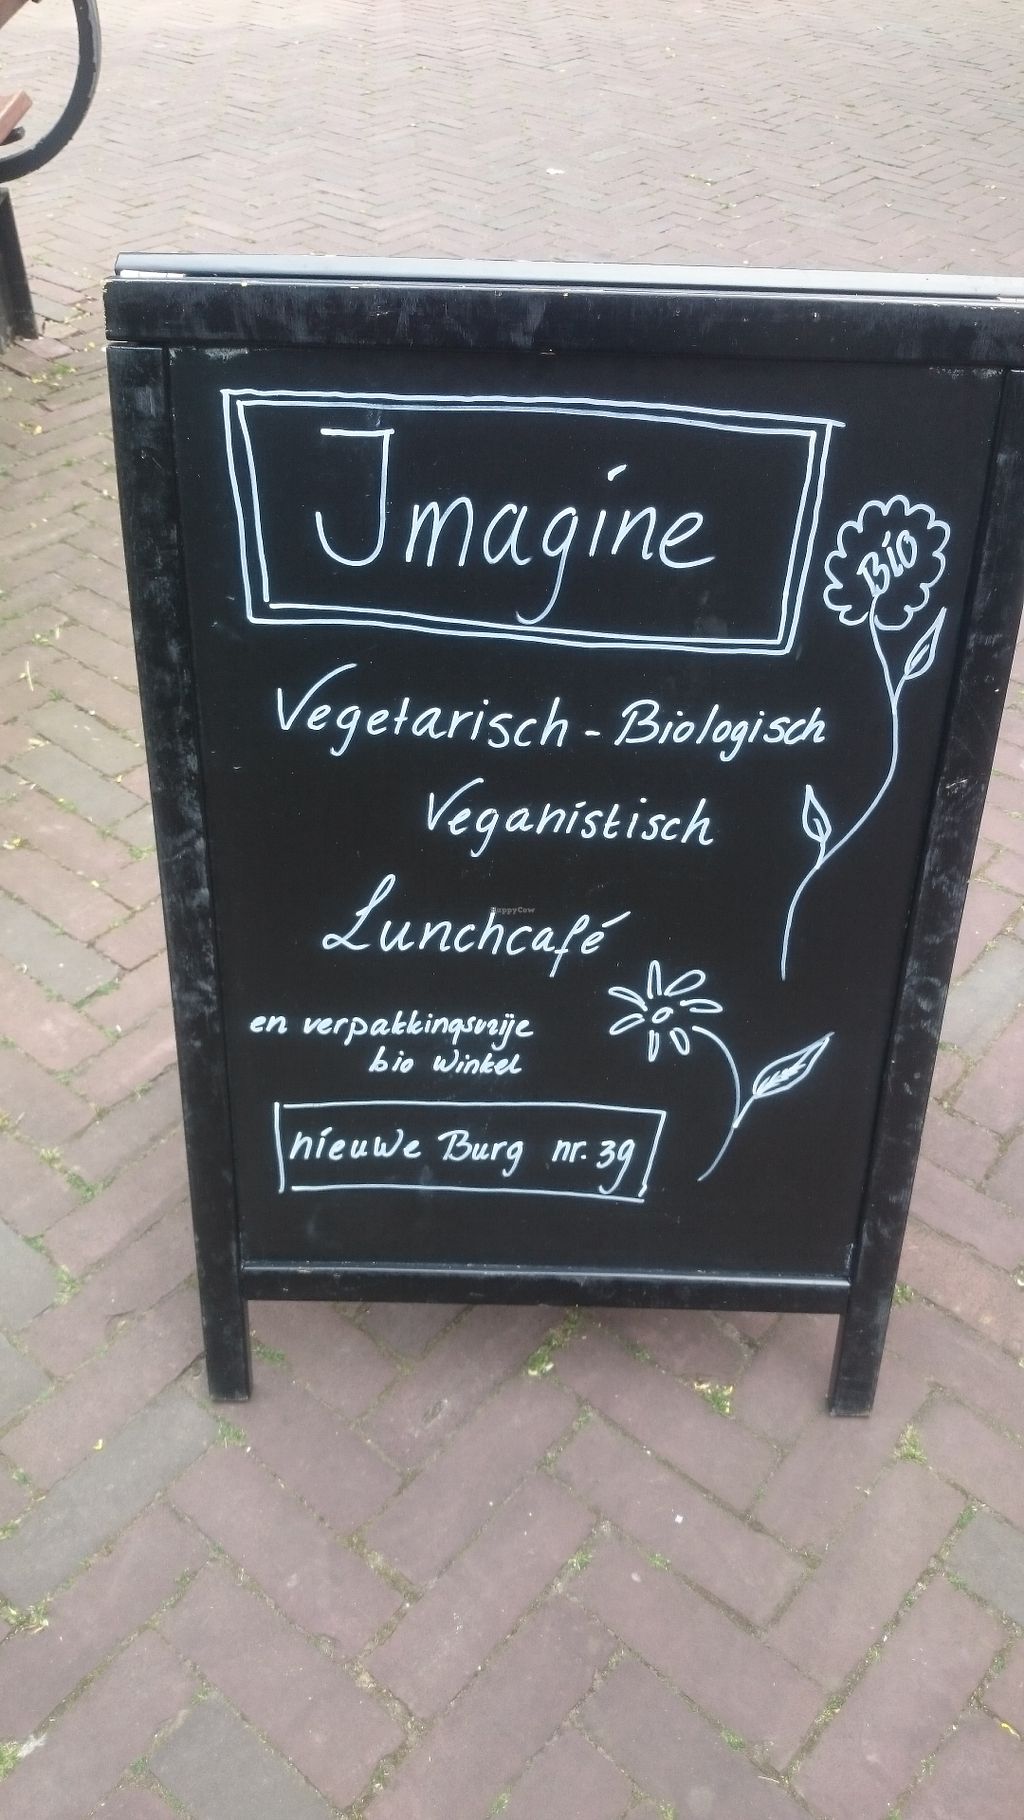 Imagine
Bio
Vegetarisch - Biologisch
Veganistisch
Lunchcafé
HappyCow
en verpakkingsvrije
bio winkel
nieuwe Burg nr. 39